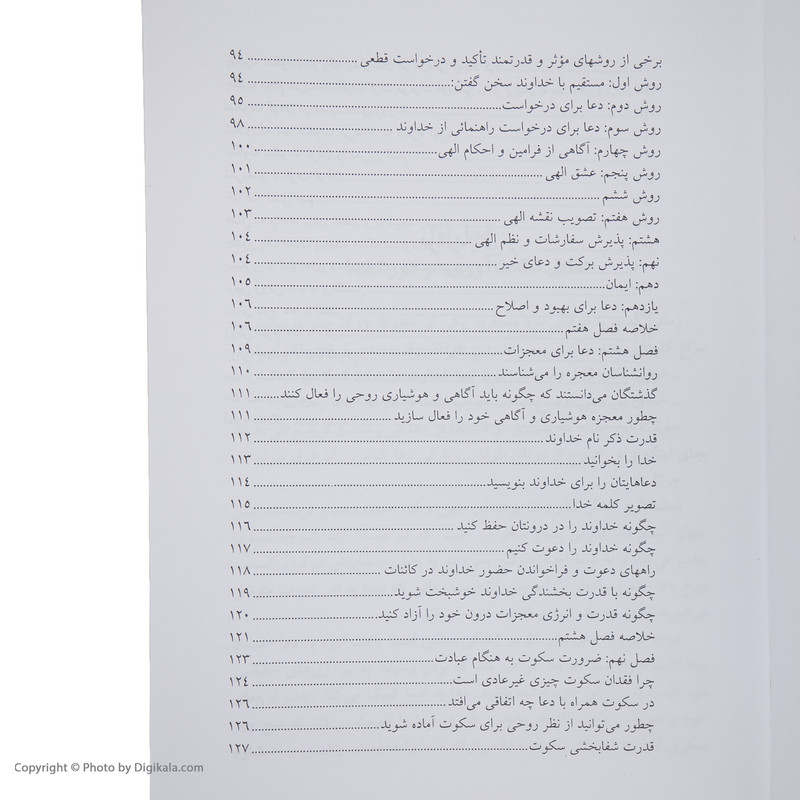 برخی از روشهای مؤثر و قدرتمند تأکید و درخواست قطعی ................................ ۹٤
روش اول: مستقیم با خداوند سخن گفتن:.................................................... ۹٤
روش دوم: دعا برای درخواست................................................................. ۹٥
روش سوم: دعا برای درخواست راهنمائی از خداوند ..................................... ۹۸
روش چهارم: آگاهی از فرامین و احکام الهی............................................... ۱۰۰
روش پنجم: عشق الهی ........................................................................ ۱۰۱
روش ششم ...................................................................................... ۱۰۲
روش هفتم: تصویب نقشه الهی .............................................................. ۱۰۳
هشتم: پذیرش سفارشات و نظم الهی ....................................................... ۱۰٤
نهم: پذیرش برکت و دعای خیر ............................................................. ۱۰٤
دهم: ایمان....................................................................................... ۱۰٥
یازدهم: دعا برای بهبود و اصلاح ............................................................ ۱۰٦
خلاصه فصل هفتم .............................................................................. ۱۰٦
فصل هشتم: دعا برای معجزات............................................................... ۱۰۹
روانشناسان معجره را می‌شناسند ............................................................. ۱۱۰
گذشتگان می‌دانستند که چگونه باید آگاهی و هوشیاری روحی را فعال کنند........ ۱۱۱
چطور معجزه هوشیاری و آگاهی خود را فعال سازید ................................... ۱۱۱
قدرت ذکر نام خداوند ......................................................................... ۱۱۲
خدا را بخوانید................................................................................... ۱۱۳
دعاهایتان را برای خداوند بنویسید............................................................ ۱۱٤
تصویر کلمه خدا................................................................................ ۱۱٥
چگونه خداوند را در درونتان حفظ کنید ................................................... ۱۱٦
چگونه خداوند را دعوت کنیم ............................................................... ۱۱۷
راههای دعوت و فراخواندن حضور خداوند در کائنات ................................. ۱۱۸
چگونه با قدرت بخشندگی خداوند خوشبخت شوید..................................... ۱۱۹
چگونه قدرت و انرژی معجزات درون خود را آزاد کنید................................ ۱۲۰
خلاصه فصل هشتم............................................................................. ۱۲۱
فصل نهم: ضرورت سکوت به هنگام عبادت.............................................. ۱۲۳
چرا فقدان سکوت چیزی غیرعادی است................................................... ۱۲٤
در سکوت همراه با دعا چه اتفاقی می‌افتد ................................................. ۱۲٦
چطور می‌توانید از نظر روحی برای سکوت آماده شوید................................ ۱۲٦
قدرت شفابخشی سکوت...................................................................... ۱۲۷
Copyright © Photo by Digikala.com